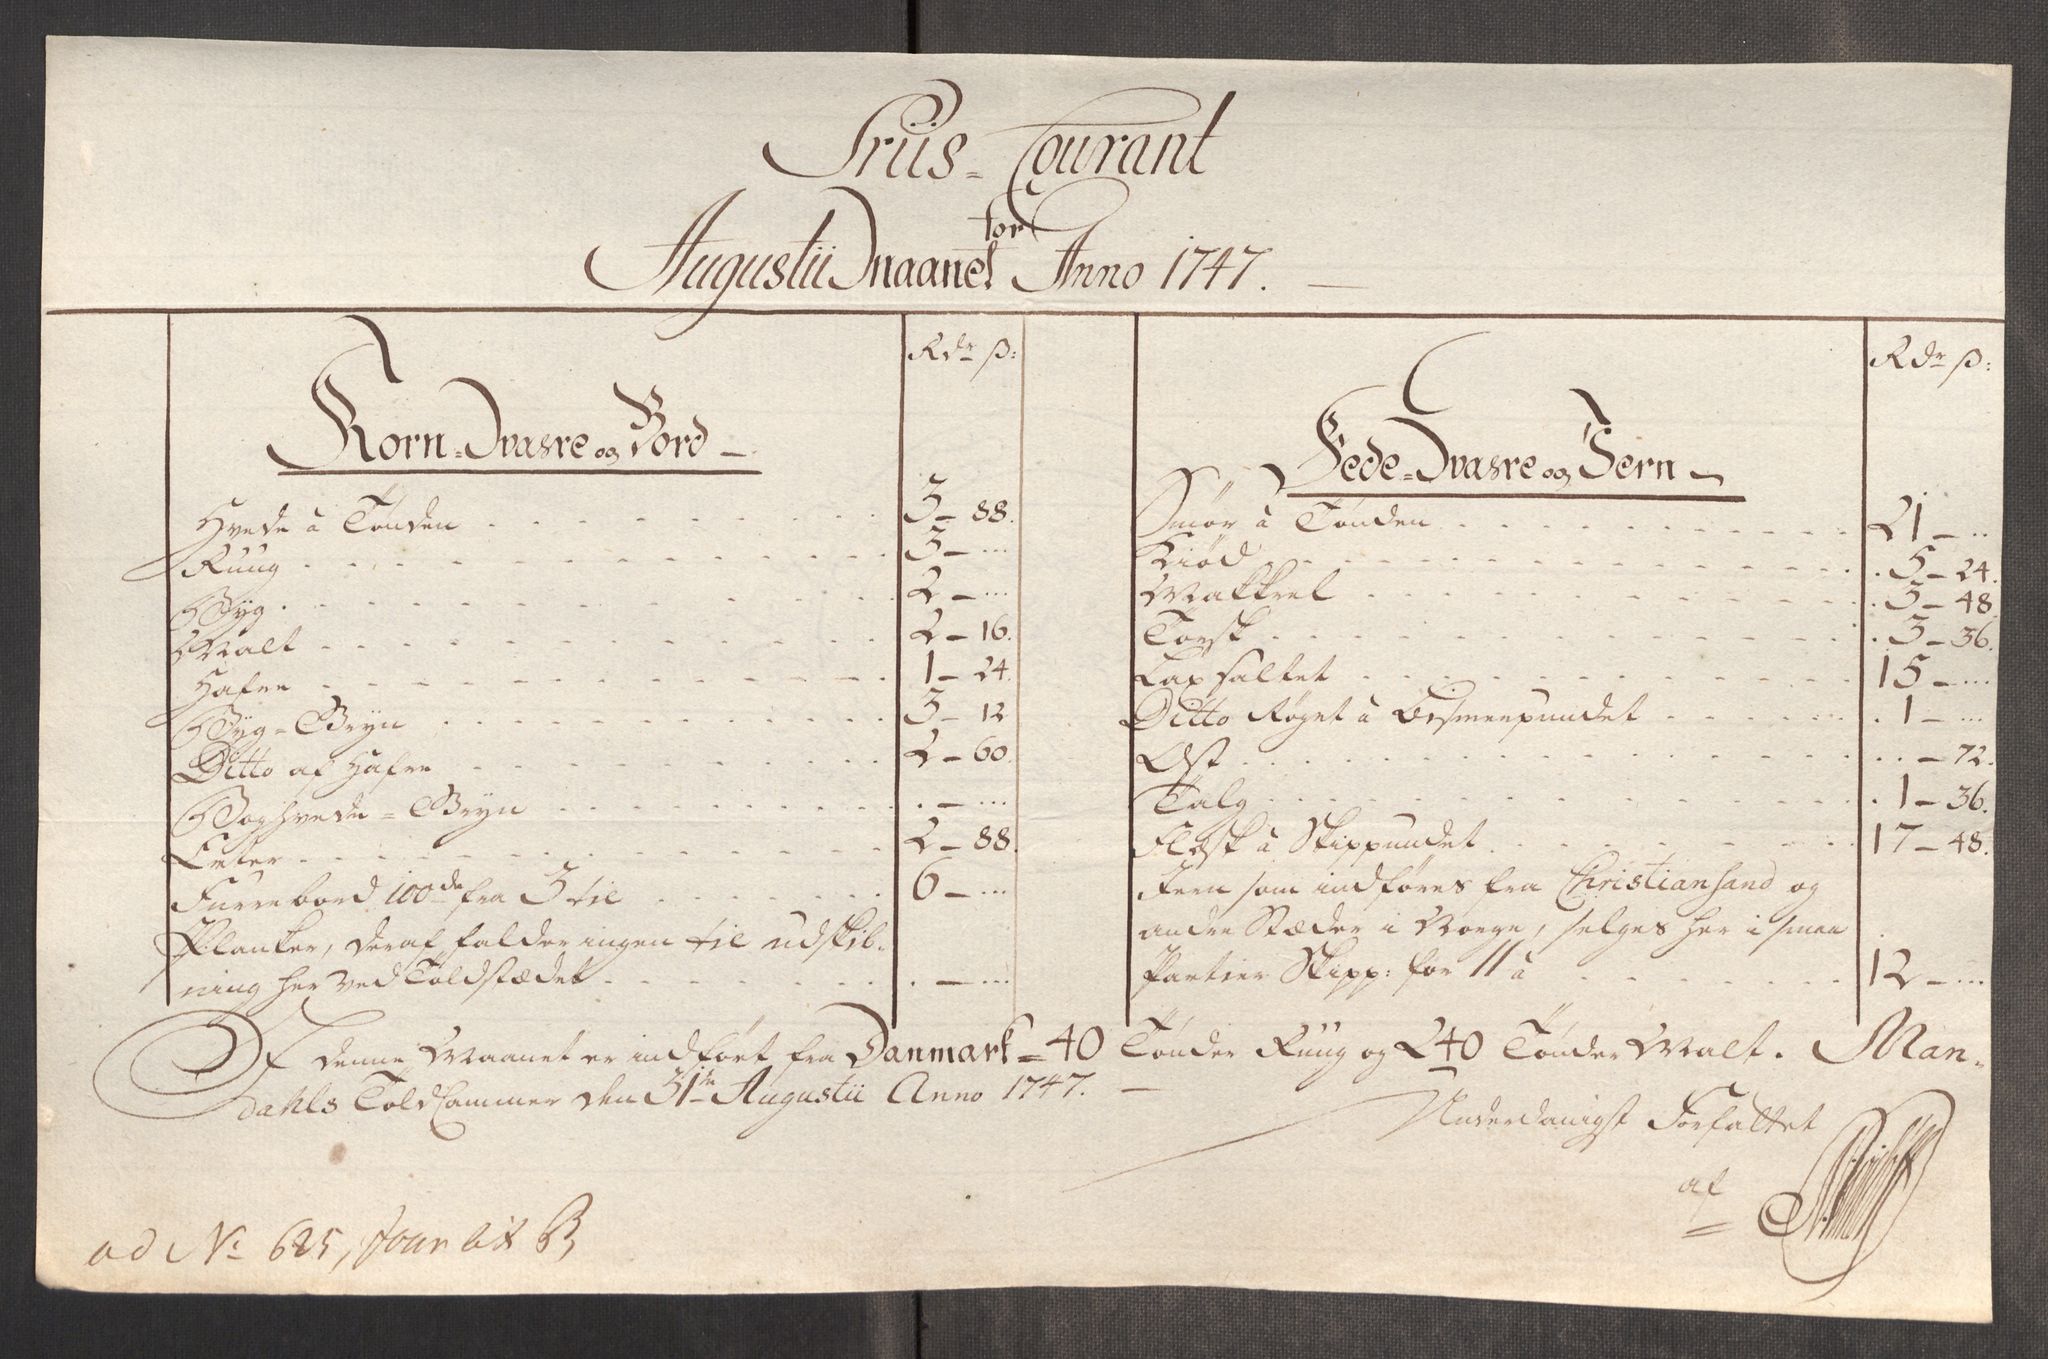 Priis-Courant
for
Augustii Maanet Anno 1747.
Rdr ß:
Korn-Wahre og Bord
Hvede à Tønden 3-88.
Ruug 3-...
Byg 2-...
Malt 2-16.
Hafre 1-24.
Byg-Gryn 3-12
Ditto af Hafre 2-60.
Boghvede-Gryn .-...
Erter 2-88.
Furrebord 100de fra 3 til 6-...
Planker, deraf falder ingen til udskib-
ning her ved Toldstædet .-...
Rdr ß:
Fede-Wahre og Jern
Smør à Tønden 21-..
Kiød 5-24.
Makkrel 3-48
Torsk 3-36.
Lax saltet 15-...
Ditto Røget à Bismerpundet 1-...
Ost ..-72.
Talg 1-36.
Flesk à Skippundet 17-48.
Jern som indføres fra Christiansand og
andre Stæder i Norge, selges her i smaa
Partier Skipp: for 11 à 12-...
I denne Maanet er indført fra Danmark = 40 Tønder Ruug og 240 Tønder Malt. Man-
dahls ToldCammer den 31te Augustii Anno 1747.
Underdanigst Forfattet
af
ad No 625, Jour Lit B,